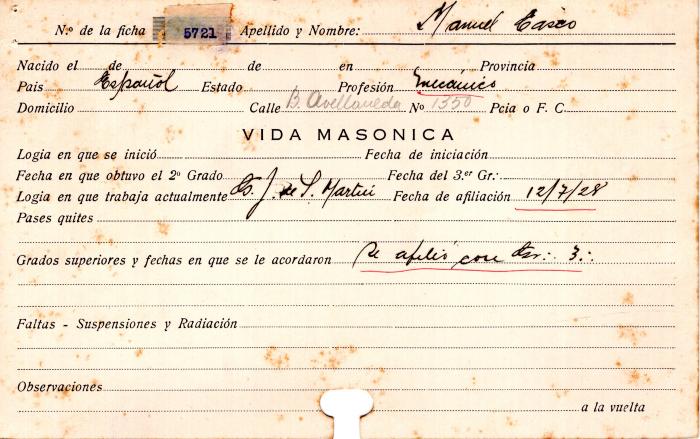 N.º de la ficha 5721 Apellido y Nombre: Manuel Casco
Nacido el de de en Provincia
Pais Español Estado Profesión Mecánico
Domicilio Calle B. Avellaneda No 1350 Pcia o F. C.
VIDA MASONICA
Logia en que se inició Fecha de iniciación
Fecha en que obtuvo el 2º Grado Fecha del 3.er Gr:
Logia en que trabaja actualmente J. de S. Martin Fecha de afiliación 12/7/28
Pases quites
Grados superiores y fechas en que se le acordaron Se afilió con Gr∴ 3∴
Faltas - Suspensiones y Radiación
Observaciones
a la vuelta